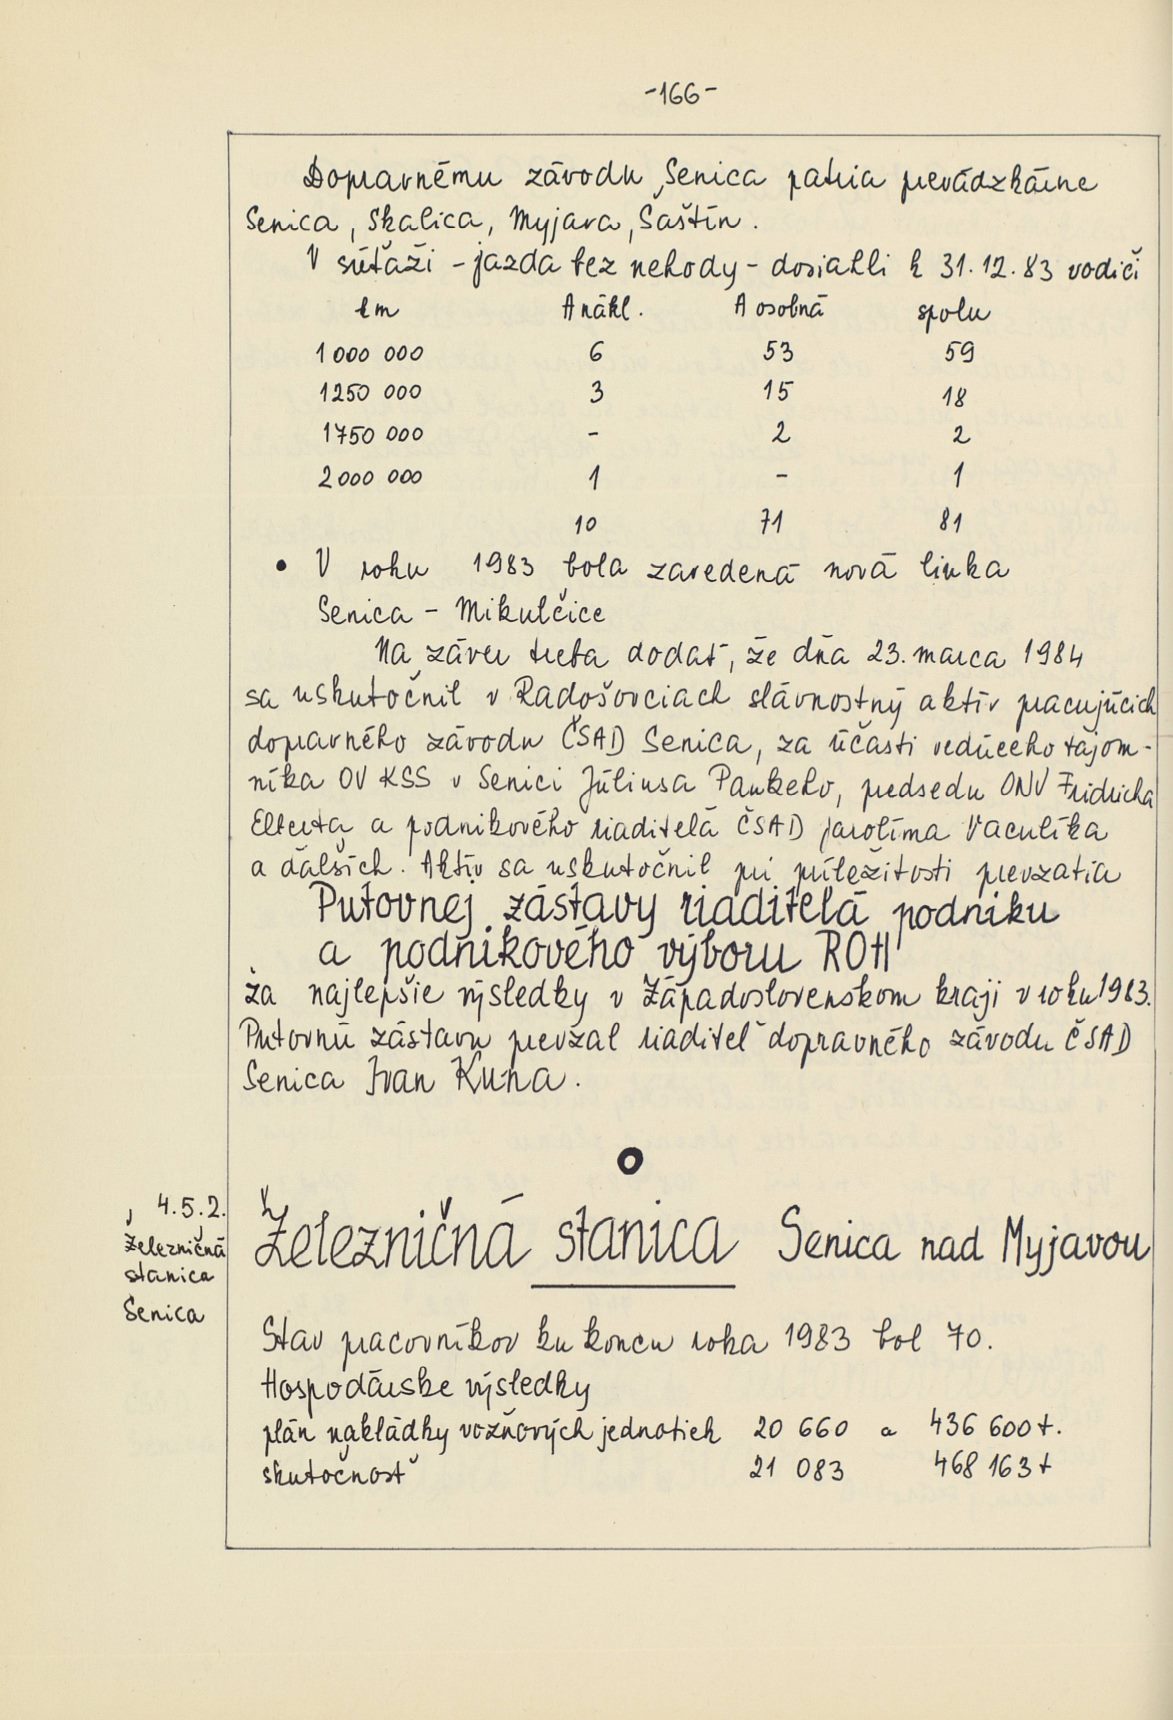 -166-
Dopravnému závodu Senica patria prevádzkárne
Senica, Skalica, Myjava, Šaštín.
V súťaži - jazda bez nehody - dosiahli k 31.12.83 vodiči
km A nákl. A osobná spolu
1 000 000 6 53 59
1 250 000 3 15 18
1 750 000 - 2 2
2 000 000 1 - 1
10 71 81
• V roku 1983 bola zavedená nová linka
Senica - Mikulčice
Na záver treba dodať, že dňa 23. marca 1984
sa uskutočnil v Radošovciach slávnostný aktív pracujúcich
dopravného závodu ČSAD Senica, za účasti vedúceho tajom-
níka OV KSS v Senici Júliusa Pankeho, predsedu ONV Fridricha
Elterta a podnikového riaditeľa ČSAD Jarolíma Vaculíka
a ďalších. Aktív sa uskutočnil pri príležitosti prevzatia
Putovnej zástavy riaditeľa podniku
a podnikového výboru ROH
za najlepšie výsledky v Západoslovenskom kraji v roku 1983.
Putovnú zástavu prevzal riaditeľ dopravného závodu ČSAD
Senica Ivan Kuna.
4.5.2.
Železničná
stanica
Senica
Železničná stanica Senica nad Myjavou
Stav pracovníkov ku koncu roka 1983 bol 70.
Hospodárske výsledky
plán nakládky vozňových jednotiek 20 660 a 436 600 t.
skutočnosť 21 083 468 163 t